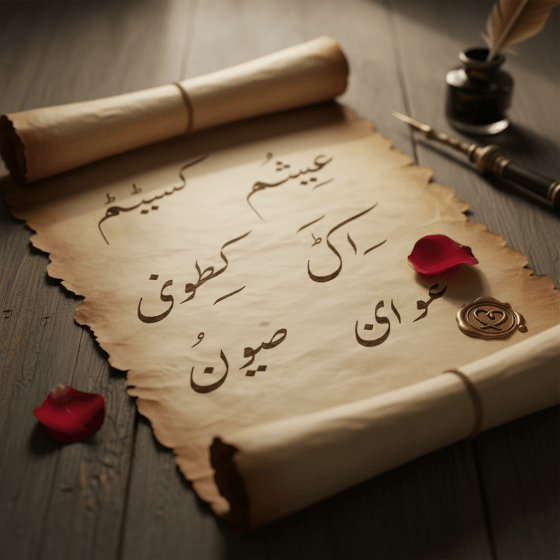 عِیشُم کسیٹٹم
اِکٹ کِطونی
عوای صیونُ